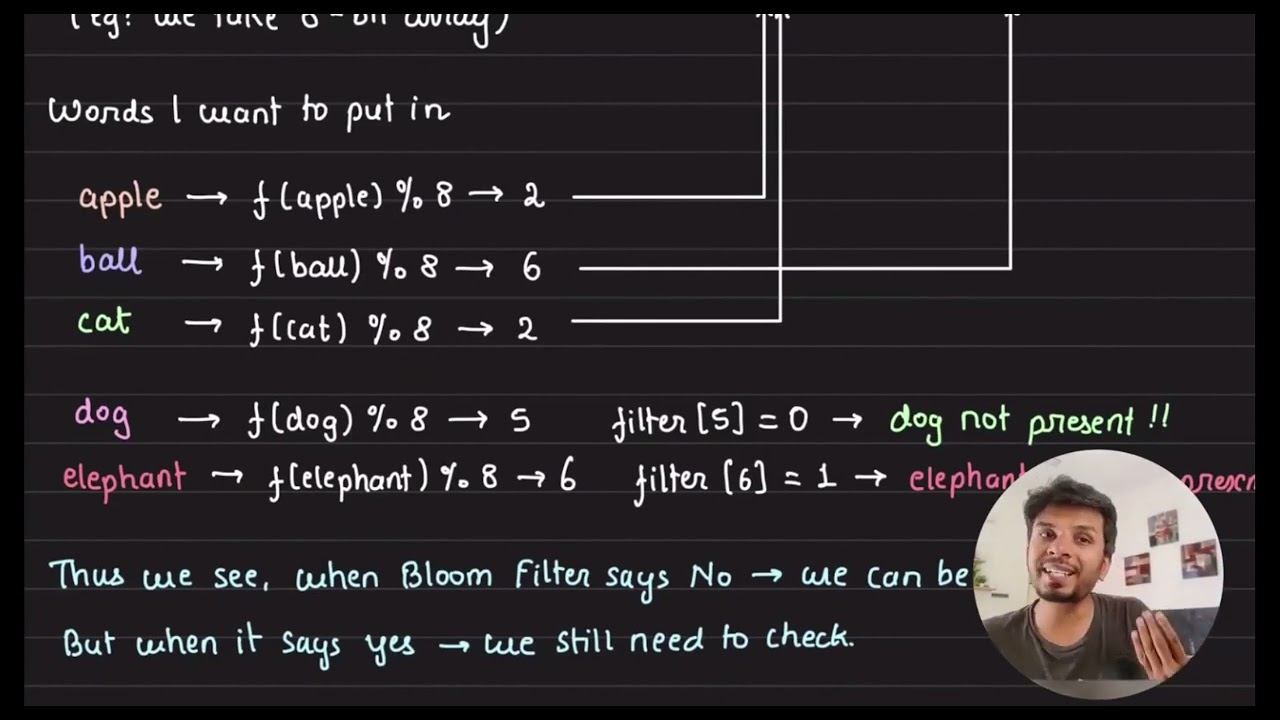 (eg: we take 8-bit array)
Words I want to put in
apple → f(apple) % 8 → 2
ball → f(ball) % 8 → 6
cat → f(cat) % 8 → 2
dog → f(dog) % 8 → 5 filter[5] = 0 → dog not present !!
elephant → f(elephant) % 8 → 6 filter [6] = 1 → elephant
Thus we see, when Bloom Filter says No → we can be
But when it says yes → we still need to check.